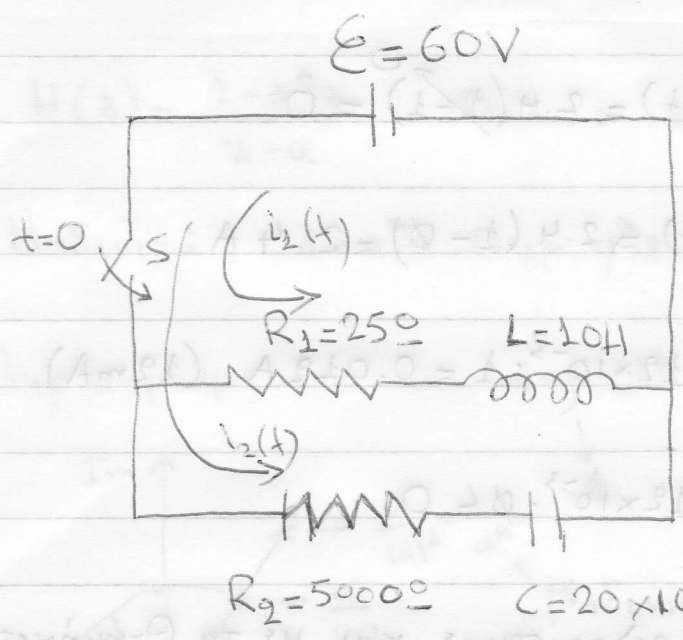 ℰ=60V
t=0
S
i₂(t)
R₁=25Ω
L=10H
i₂(t)
R₂=5000Ω
C=20×10